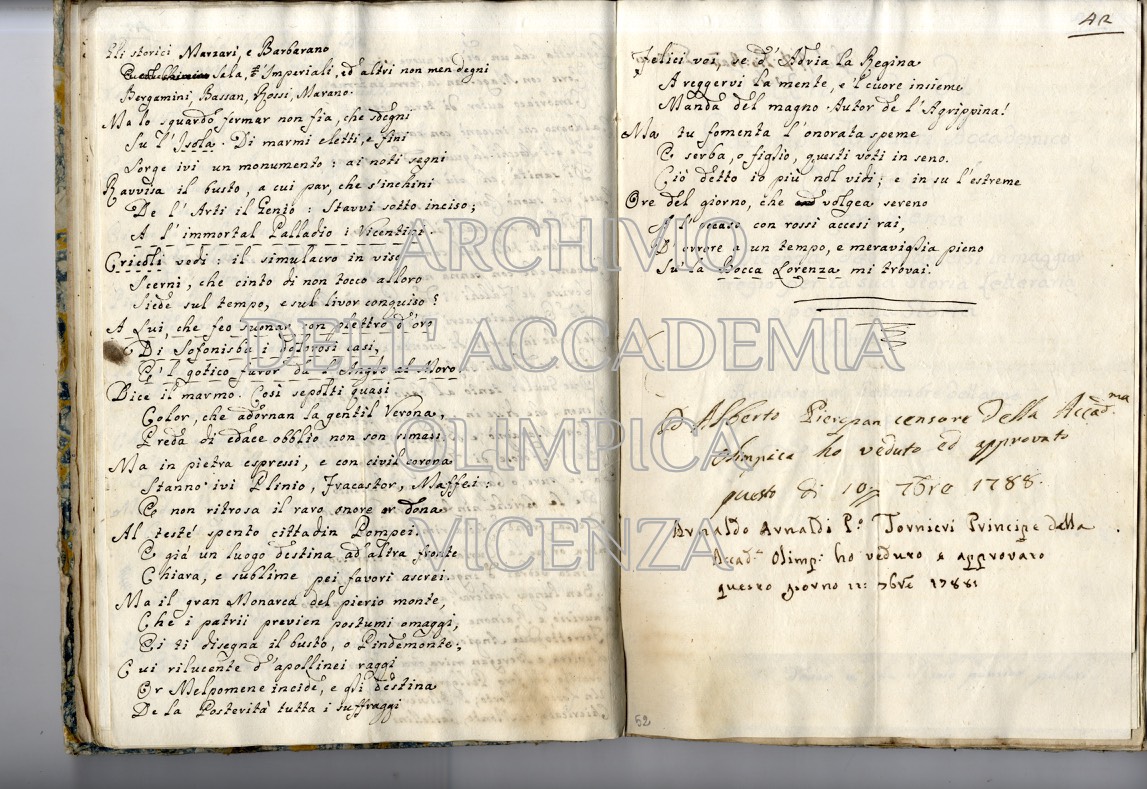 Gli storici Marzari, e Barbarano
Sala, e Imperiali, ed altri non men degni
Bergamini, Bassan, Rossi, Marano.
Ma lo sguardo fermar non fia, che sdegni
Su l'Isola. Di marmi eletti, e fini
Sorge ivi un monumento: ai noti segni
Ravvisa il busto, a cui par, che s'inchini
De l'Arti il Genio: Stavvi sotto inciso;
A l'immortal Palladio i Vicentini.
Cricoli vedi: il simulacro in viso
Scerni, che cinto di non tocco alloro
Siede sul tempo, e sul livor conquiso?
A Lui, che feo suonar con plettro d'oro
Di Sofonisba i dolorosi casi,
E 'l gotico furor da l'Anglo al Moro
Dice il marmo. Così sepolti quasi
Color, che adornan la gentil Verona,
Preda di edace obblio non son rimasi.
Ma in pietra espressi, e con civil corona
Stanno ivi Plinio, Fracastor, Maffei:
E non ritrosa il raro onore or dona
Al testé spento cittadin Pompei.
E già un luogo destina ad altra fronte
Chiara, e sublime pei favori ascrei.
Ma il gran Monarca del pierio monte,
Che i patrii previen postumi omaggi,
Ei ti disegna il busto, o Pindemonte;
Cui rilucente d'apollinei raggi
Or Melpomene incide, e gli destina
De la Posterità tutta i suffraggi
AR
Felici voi, se d'Adria la Regina
A reggervi la mente, e 'l cuore insieme
Manda del magno Autor de l'Agrippina!
Ma tu fomenta l'onorata speme
E serba, o figlio, questi voti in seno.
Ciò detto io più nol vidi; e in su l'estreme
Ore del giorno, che volgea sereno
A l'occaso con rossi accesi rai,
D'orrore a un tempo, e meraviglia pieno
Su la Bocca Lorenza mi trovai.
Io Alberto Pierepan censore della Accad.ma
Olimpica ho veduto ed approvato
questo di 10 7bre 1788.
Arnaldo Arnaldi P.o Tornieri Principe della
Accad. Olimp. ho veduto e approvato
questo giorno 11: 7bre 1788:
52
ARCHIVIO
DELL'ACCADEMIA
OLIMPICA
VICENZA